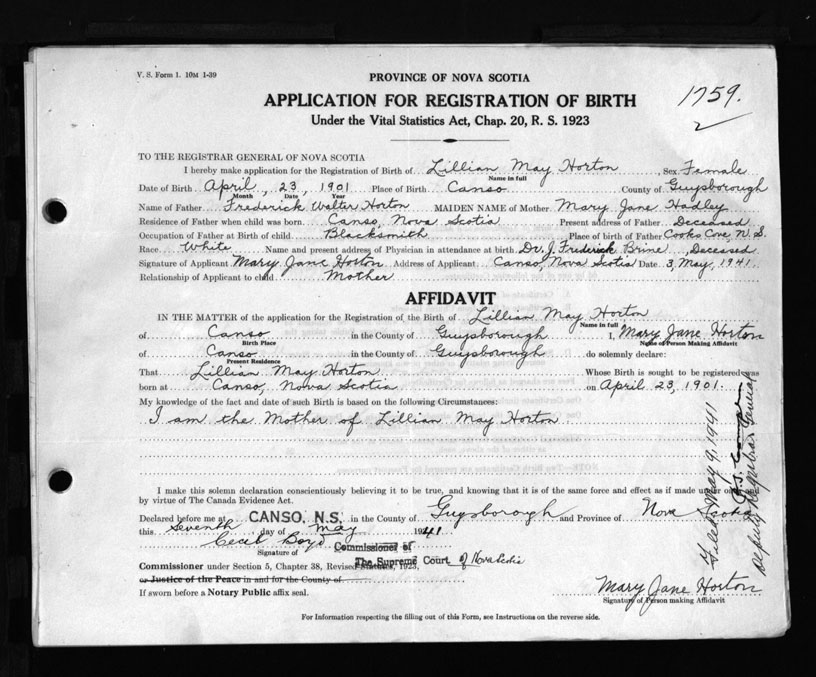 V. S. Form 1. 10M 1-39
PROVINCE OF NOVA SCOTIA
1759.
APPLICATION FOR REGISTRATION OF BIRTH
Under the Vital Statistics Act, Chap. 20, R. S. 1923
TO THE REGISTRAR GENERAL OF NOVA SCOTIA
I hereby make application for the Registration of Birth of Lillian May Horton, Sex Female
Name in full
Date of Birth April, 23, 1901 Place of Birth Canso County of Guysborough
Month Date Year
Name of Father Frederick Walter Horton MAIDEN NAME of Mother Mary Jane Hadley
Residence of Father when child was born Canso, Nova Scotia Present address of Father Deceased
Occupation of Father at Birth of child Blacksmith Place of birth of Father Cooks Cove, N. S.
Race White Name and present address of Physician in attendance at birth Dr. J. Frederick Brine, Deceased
Signature of Applicant Mary Jane Horton Address of Applicant Canso, Nova Scotia Date 3, May, 1941.
Relationship of Applicant to child Mother
AFFIDAVIT
IN THE MATTER of the application for the Registration, of the Birth of Lillian May Horton
Name in full
of Canso in the County of Guysborough I, Mary Jane Horton
Birth Place Name of Person Making Affidavit
of Canso in the County of Guysborough do solemnly declare:
Present Residence
That Lillian May Horton Whose Birth is sought to be registered was
born at Canso, Nova Scotia on April 23, 1901.
My knowledge of the fact and date of such Birth is based on the following Circumstances:
I am the Mother of Lillian May Horton
I make this solemn declaration conscientiously believing it to be true, and knowing that it is of the same force and effect as if made under oath and
by virtue of The Canada Evidence Act.
Declared before me at CANSO, N.S. in the County of Guysborough and Province of Nova Scotia
this Seventh day of May 1941
Cecil Boyd Commissioner of
Signature of The Supreme Court of Nova Scotia
Commissioner under Section 5, Chapter 38, Revised Statutes, 1923,
or Justice of the Peace in and for the County of
If sworn before a Notary Public affix seal.
Mary Jane Horton
Signature of Person making Affidavit
For Information respecting the filling out of this Form, see Instructions on the reverse side.
Filed May 9, 1941
Deputy Registrar General